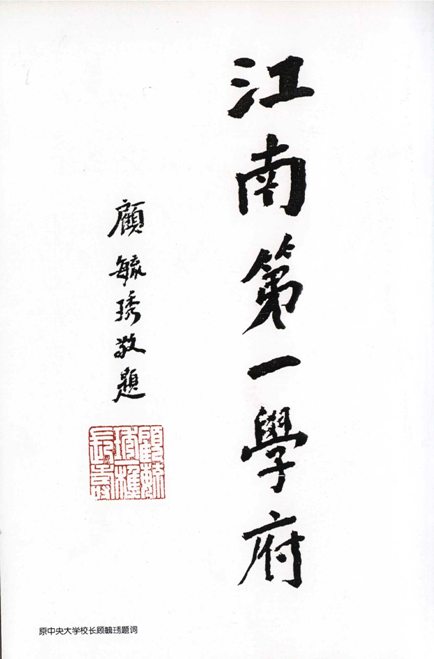 江南第一學府
顧毓琇敬題
原中央大学校长顾毓琇题词